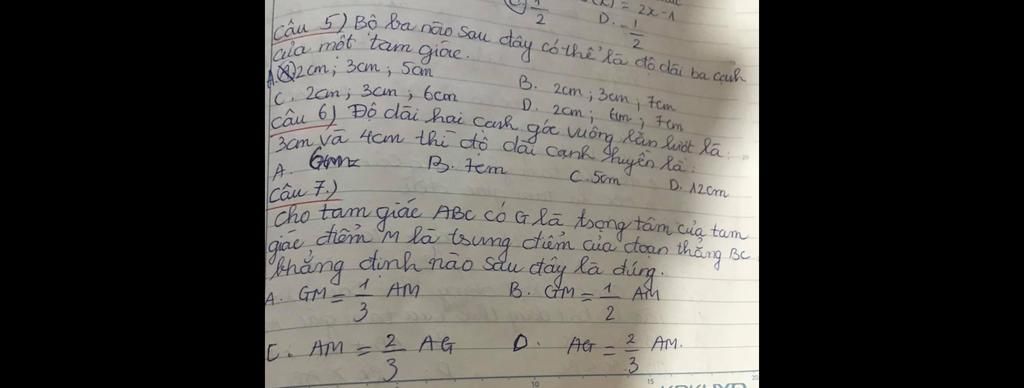 C. 1/2 (x) = 2x-1
D. -1/2
Câu 5) Bộ ba nào sau đây có thể là độ dài ba cạnh
của một tam giác.
A. 2cm; 3cm; 5cm B. 2cm; 3cm; 7cm
C. 2cm; 3cm; 6cm D. 2cm; 6m; 7cm
Câu 6) Độ dài hai cạnh góc vuông lần lượt là:
3cm và 4cm thì độ dài cạnh huyền là:
A. B. 7cm C. 5cm D. 12cm
Câu 7.)
Cho tam giác ABC có G là trọng tâm của tam
giác điểm M là trung điểm của đoạn thẳng BC
khẳng định nào sau đây là đúng.
A. GM = 1/3 AM B. GM = 1/2 AM
C. AM = 2/3 AG D. AG = 2/3 AM.
10 15 20